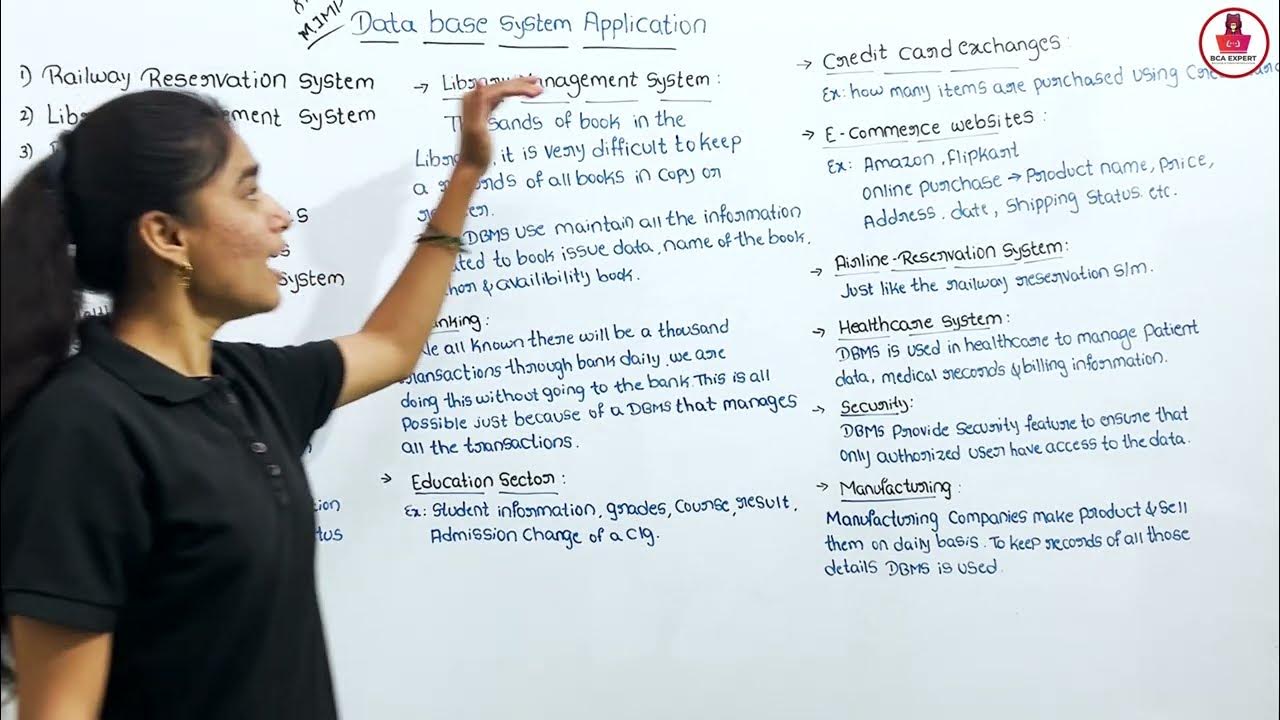 M.IMP
Data base System Application
1) Railway Reservation System
2) Lib ement System
3)
s
s
System
tion
tus
→ Library Management System :
Thousands of book in the
Library, it is very difficult to keep
a records of all books in copy or
register.
DBMS use maintain all the information
related to book issue data, name of the book,
author & availibility book.
Banking :
We all known there will be a thousand
transactions through bank daily. we are
doing this without going to the bank. This is all
Possible just because of a DBMS that manages
all the transactions.
→ Education Sector :
Ex: Student information, grades, Course, result,
Admission Change of a clg.
→ Credit card exchanges :
Ex: how many items are purchased using Credit card
→ E-Commerce websites :
Ex: Amazon, Flipkart
online purchase → Product name, Price,
Address. date, Shipping Status. etc.
→ Airline-Reservation System:
Just like the railway reservation s/m.
→ Healthcare System :
DBMS is used in healthcare to manage Patient
data, medical records & billing information.
→ Security:
DBMS Provide Security feature to ensure that
only authorized user have access to the data.
→ Manufacturing :
Manufacturing Companies make product & sell
them on daily basis. To keep records of all those
details DBMS is used.
BCA EXPERT